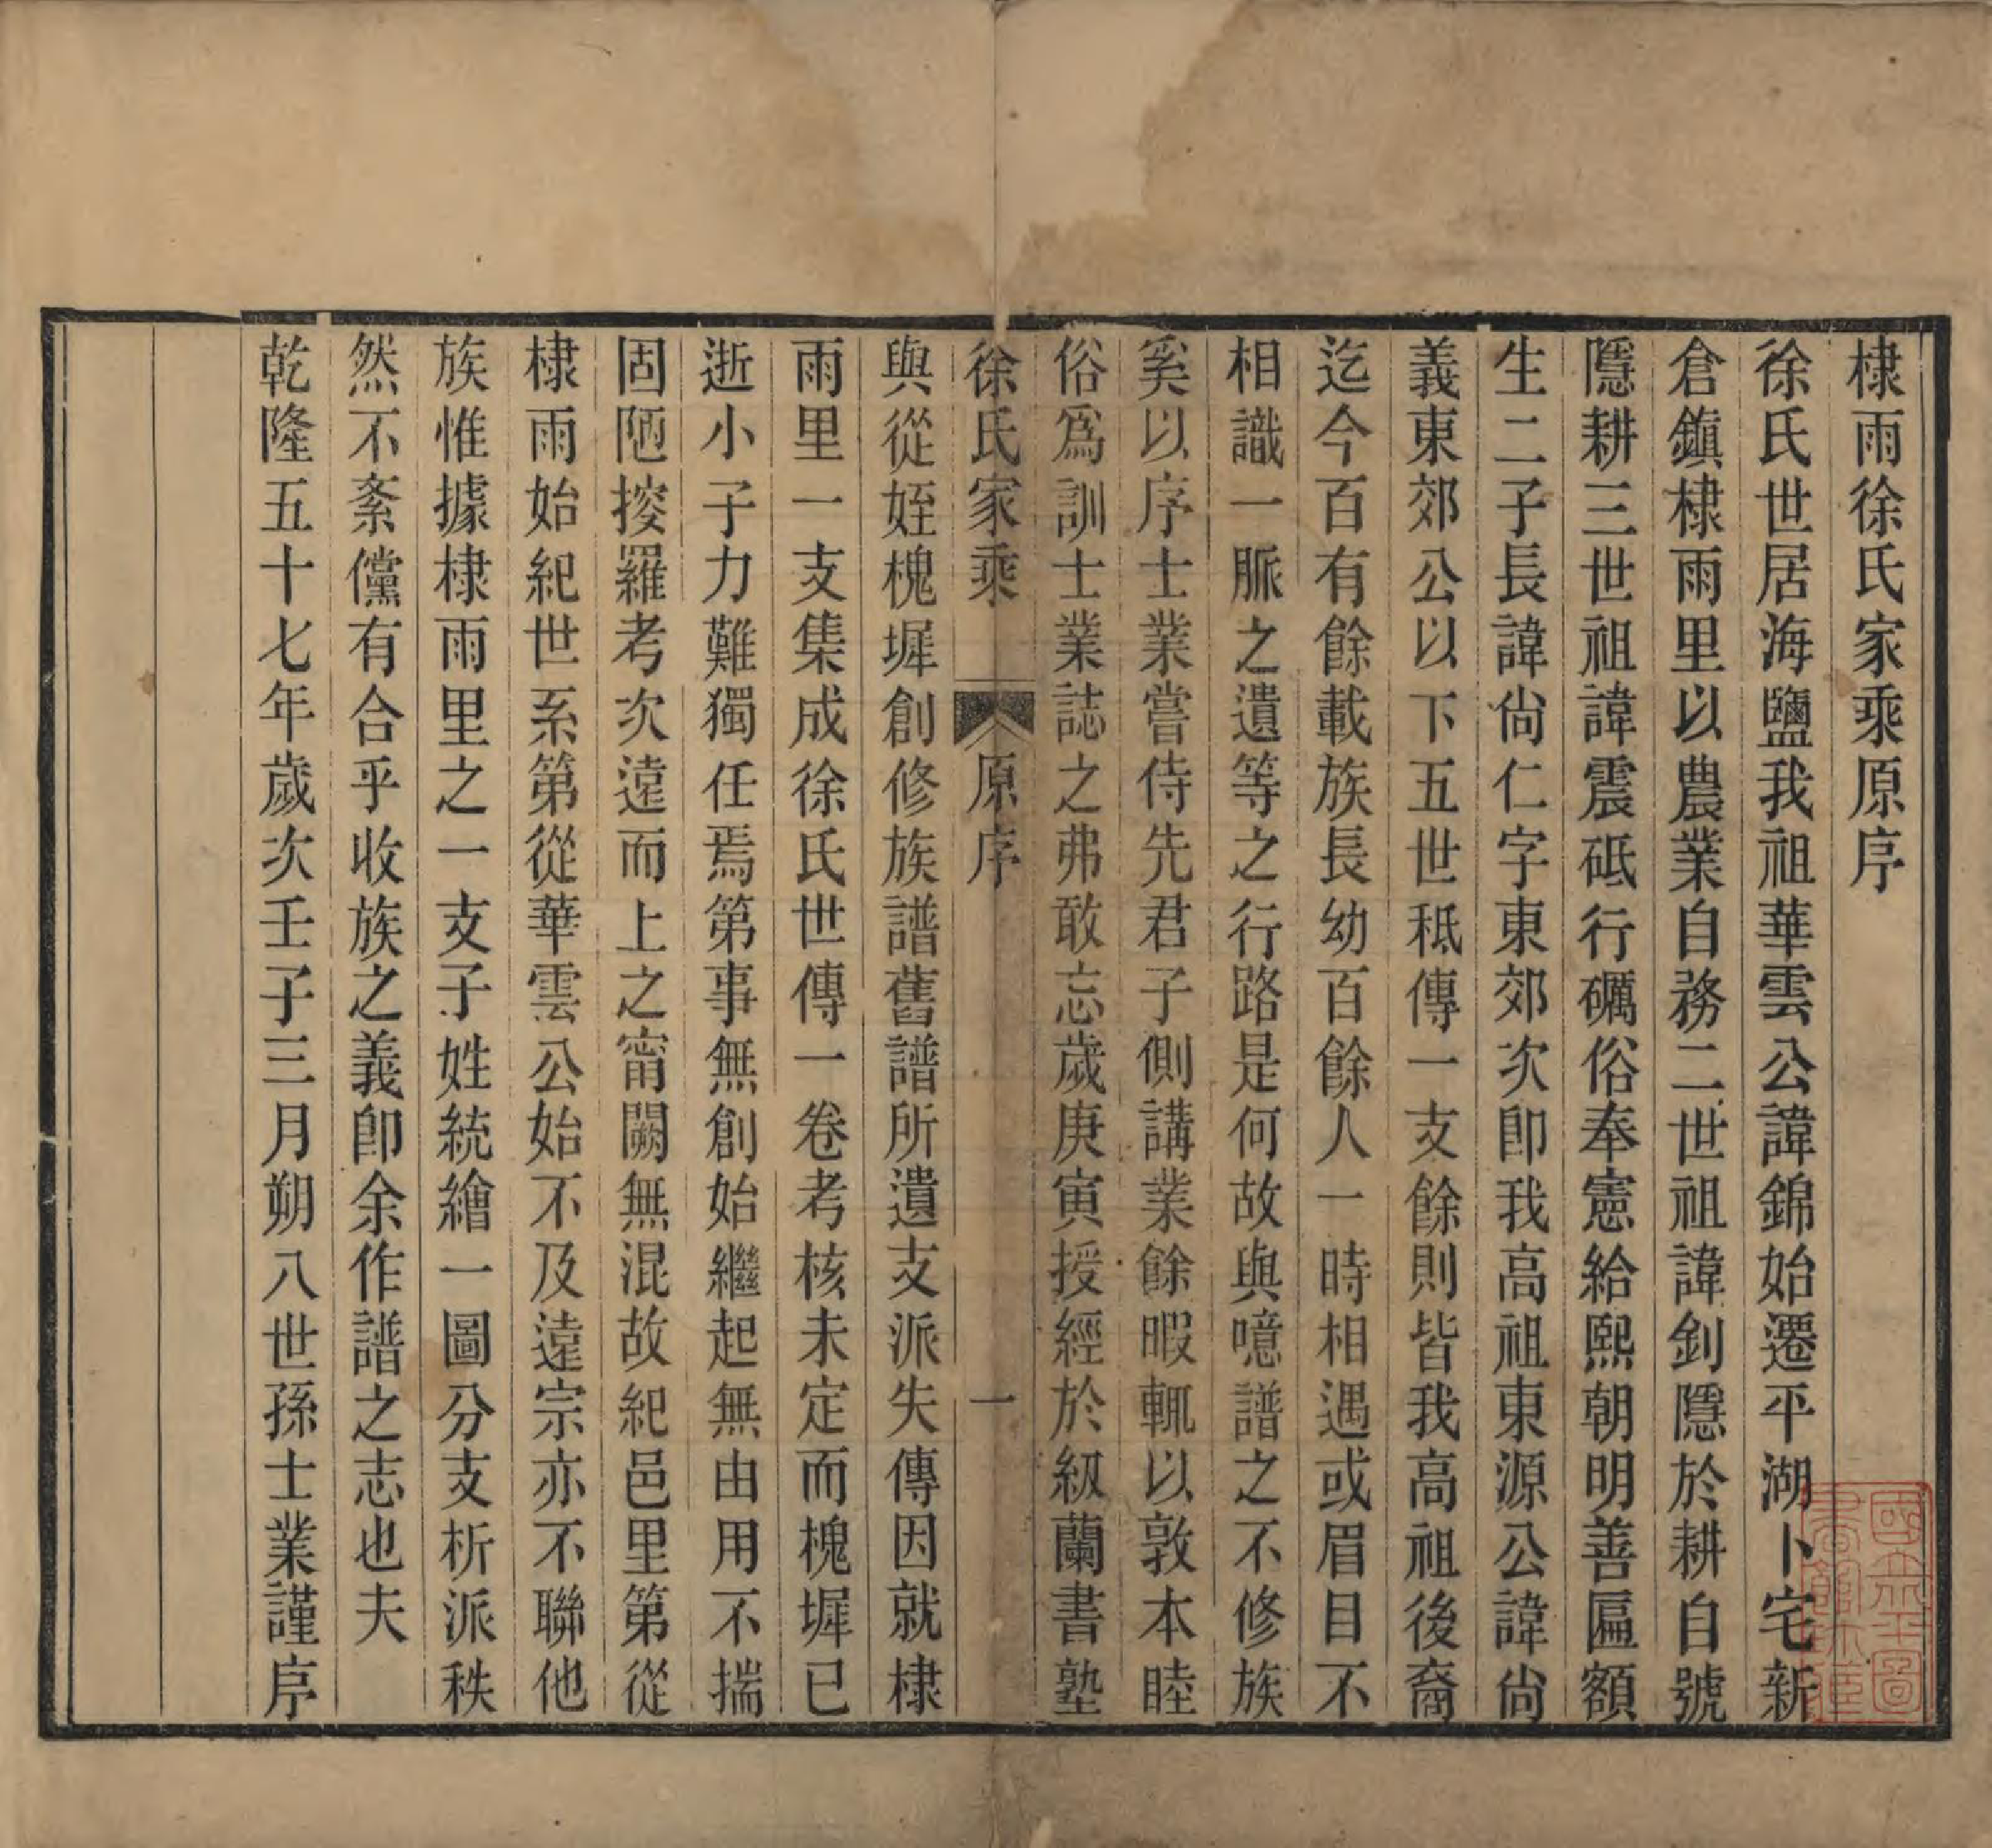 棣雨徐氏家乘原序
徐氏世居海鹽我祖華雲公諱錦始遷平湖卜宅新
倉鎮棣雨里以農業自務二世祖諱釗隱於耕自號
隱耕三世祖諱震砥行礪俗奉憲給熙朝明善匾額
生二子長諱尙仁字東郊次卽我高祖東源公諱尙
義東郊公以下五世秪傳一支餘則皆我高祖後裔
迄今百有餘載族長幼百餘人一時相遇或眉目不
相識一脈之遺等之行路是何故與噫譜之不修族
奚以序士業嘗侍先君子側講業餘暇輒以敦本睦
俗爲訓士業誌之弗敢忘歲庚寅授經於紉蘭書塾
徐氏家乘 原序 一
與從姪槐墀創修族譜舊譜所遺支派失傳因就棣
雨里一支集成徐氏世傳一卷考核未定而槐墀已
逝小子力難獨任焉第事無創始繼起無由用不揣
固陋搜羅考次遠而上之甯闕無混故紀邑里第從
棣雨始紀世系第從華雲公始不及遠宗亦不聯他
族惟據棣雨里之一支子姓統繪一圖分支析派秩
然不紊儻有合乎收族之義卽余作譜之志也夫
乾隆五十七年歲次壬子三月朔八世孫士業謹序